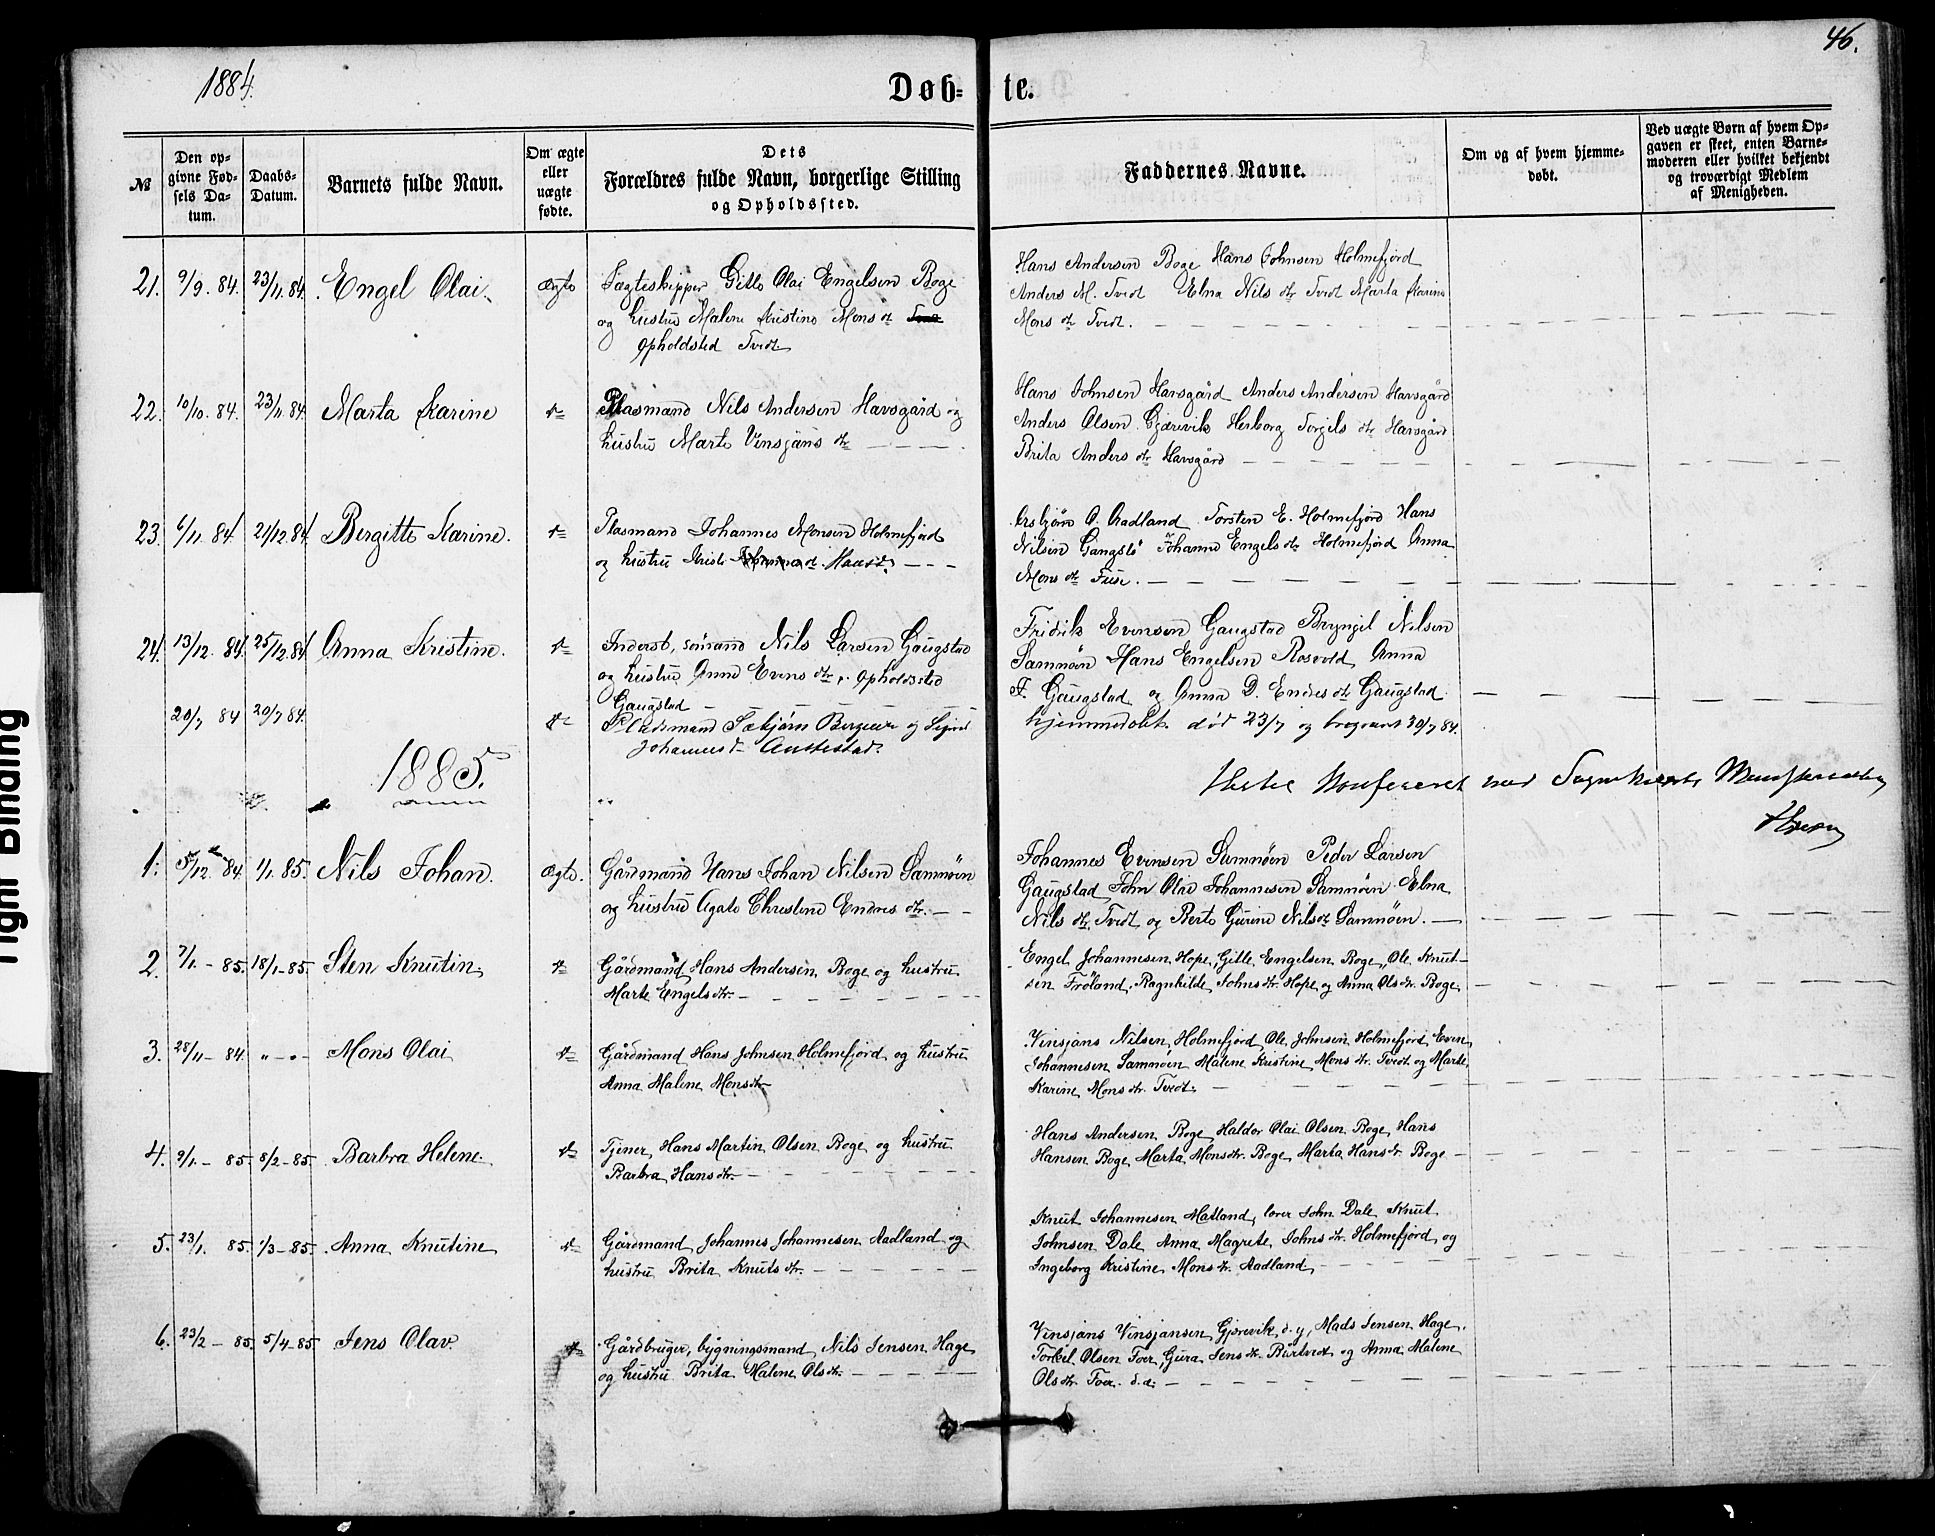 46.
1884.
Døb- te.
№
Den opgivne Fødsels Datum.
Daabs-Datum.
Barnets fulde Navn.
Om ægte eller uægte fødte.
Dets Forældres fulde Navn, borgerlige Stilling og Opholdssted.
Faddernes Navne.
Om og af hvem hjemmedøbt.
Ved uægte Børn af hvem Opgaven er skeet, enten Barnemoderen eller hvilket bekjendt og troværdigt Medlem af Menigheden.
21. 9/9. 84. 23/11. 84. Engel Olai. Ægte
Jagteskipper Gitle Olai Engelsen Boge
og hustru Malene Kristine Mons dtr
Opholdsted Tvedt.
Hans Andersen Boge Hans Johnsen Holmefjord
Anders M. Tvedt Elna Nils dtr Tvedt Marta Karine
Mons dtr Tvedt.
22. 10/10. 84. 23/11. 84. Marta Karine
Plasmand Nils Andersen Havsgård og
hustru Marte Vinsjans dtr
Hans Johnsen Havsgård Anders Andersen Havsgård
Anders Olsen Gjærevik Herborg Torgils dtr Havsgård
Brita Anders dtr Havsgård
23. 6/11 84 21/12. 84. Bergitte Karine.
Plasmand Johannes Monsen Holmefjord
og hustru
Asbjørn O. Aadland Torsten E. Holmefjord Hans
Nilsen Gangstø Johanne Engels dtr Holmefjord Anna
Mons dtr Fuse.
24. 13/12. 84. 25/12. 84 Anna Kristine.
Inderst, sømand Nils Larsen Gaugstad
og hustru Anne Evens dtr, Opholdssted
Gaugstad
Fridrik Evensen Gaugstad Bryngel Nilsen
Samnøen Hans Engelsen Rosvold, Anna
F. Gaugstad og Anna D. Endres dtr Gaugstad.
20/7 84 20/7 84.
Pladsmand Sæbjørn Berge og Sigrid
Johannesd
hjemmedøbt død 23/7 og begravet 30/7 84.
1885.
1. 5/12 84 1/1. 85. Nils Johan. Ægte.
Gårdmand Hans Johan Nilsen Samnøen
og hustru Agate Christine Endres dtr.
Johannes Evensen Samnøen Peder Larsen
Gaugstad John Olai Johannesen Samnøen Elna
Nils dtr. Tvedt og Berte Gurine Nilsdt Samnøen.
2. 7/1 - 85. 18/1 - 85. Sten Knutin
Gårdmand Hans Andersen Boge og hustru
Marte Engels dtr.
Engel Johannesen Hope, Gitle Engelsen Boge, Ole Knut-
sen Frøland, Ragnhilde Johns dtr. Hope og Anna Ols dtr. Boge
3. 28/11 - 84. " - " - Mons Olai
Gårdmand Hans Johnsen Holmefjord og hustru
Anna Malene Mons dtr
Vinsjans Nilsen Holmefjord Ole Johnsen Holmefjord Even
Johannesen Samnøen Malene Kristine Mons dtr. Tvedt og Marte
Karine Mons dtr. Tvedt.
4. 9/1 - 85. 8/2 - 85. Barbra Helene
Tjener Hans Martin Olsen Boge og hustru
Barbra Hans dtr.
Hans Andersen Boge Haldor Olai Olsen Boge Hans
Hansen Boge Marta Mons dtr. Boge Marta Hans dtr Boge
5. 23/1. 85. 1/3 - 85. Anna Knutine
Gårdmand Johannes Johannesen Aadland og
hustru Brita Knuts dtr.
Knut Johannesen Hatland, lærer John Dale Knut
Johnsen Dale Anna Magrete Johns dtr. Holmefjord og
Ingeborg Kristine Mons dtr. Aadland
6. 23/2 - 85. 5/4 - 85. Jens Olav
Gårdbruger, bygningsmand Nils Jensen Hage
og hustru Brita Malene Ols dtr.
Vinsjans Vinsjansen Gjærevik d. y, Mads Jensen Hage.
Torkel Olsen Toer, Gura Jens dtr. Bårtvedt og Anna Malene
Ols dtr. Toer. d. a.
Tight Binding